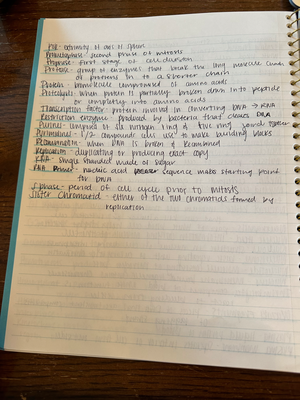 Pole - extremity of axis of sphere
Prometaphase - second phase of mitosis
Prophase - first stage of cell division
Protease - group of enzymes that break the long molecule chains
of proteins in to a shorter chain
Protein - biomolecule comprosed of amino acids
Proteolysis - when protein is partially broken down into peptide
or completely into amino acids
Transcription factor - protein involved in converting DNA → RNA
Restriction enzyme - produced by bacteria that cleaves DNA
Purine - comprosed of six nitrogen ring & five ring joined together
Pyrimidine - 1/2 compounds cells use to make building blocks
Recombination - when DNA is broken & recombined
Replication - duplicating or producing exact copy
RNA - single stranded made of sugar
RNA Primer - nucleic acid sequence makes starting point
for DNA
S phase - period of cell cycle prior to mitosis
Sister Chromatid - either of the two chromatids formed by
replication